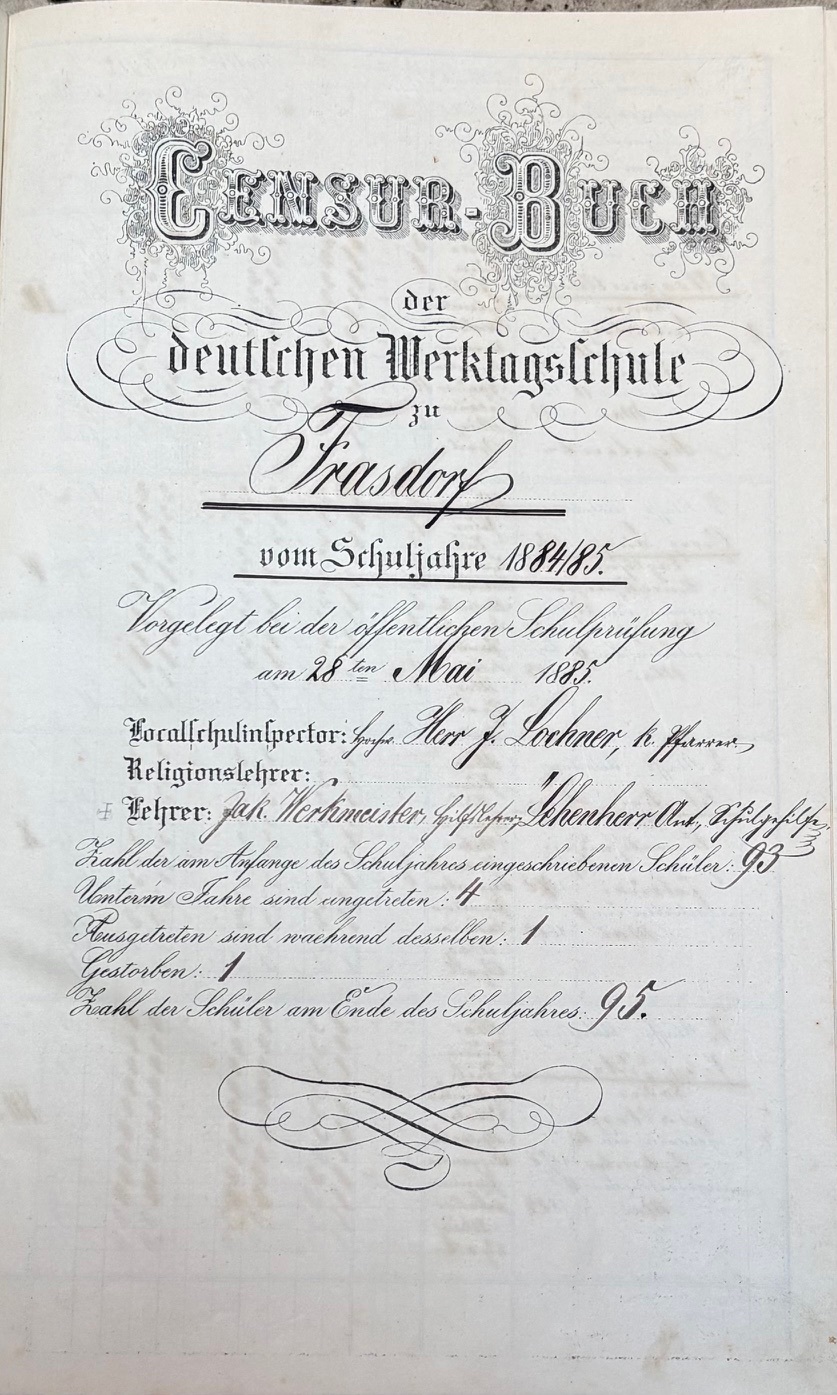 Censur-Buch
der
deutschen Werktagsschule
zu
Frasdorf
vom Schuljahre 1884/85.
Vorgelegt bei der öffentlichen Schulprüfung
am 28ten Mai 1885.
Localschulinspector: Hochw. Herr J. Lochner, k. Pfarrer.
Religionslehrer: "
Lehrer: Jak. Werkmeister, Hilfslehrer, Lehenherr Ant., Schulgehilfe.
Zahl der am Anfange des Schuljahres eingeschriebenen Schüler: 93
Unterm Jahre sind eingetreten: 4
Ausgetreten sind waehrend desselben: 1
Gestorben: 1
Zahl der Schüler am Ende des Schuljahres: 95.